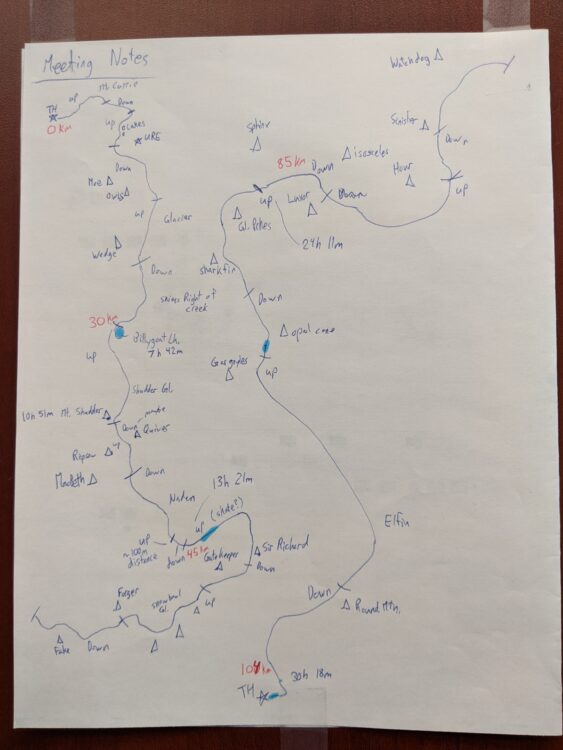 Meeting Notes
Mt Currie
TH
up
Down
0 km
up
Lakes
URE
Down
Moe
Owls
up
Glacier
Wedge
Down
skiers Right of
creek
30 km
Billygoat Lk.
7h 42m
up
Shudder Gl.
10h 51m Mt. Shudder
Down
maybe
Quiver
up
Ripsaw
Macbeth
Down
Naden
13h 21m
up
(skate?)
up
~100m
distance
down
45 km
Gatekeeper
Sir Richard
Down
up
Forger
snowbowl
Gl.
Fake
Down
Watchdog
Sphinx
Sinister
Down
85 km
Down
isosceles
Hour
up
up
Luxor
Down
Gl. Pikes
24h 11m
Sharkfin
Down
opal cone
Gargoyles
up
Elfin
Down
Round Mtn.
104 km
30h 18m
TH